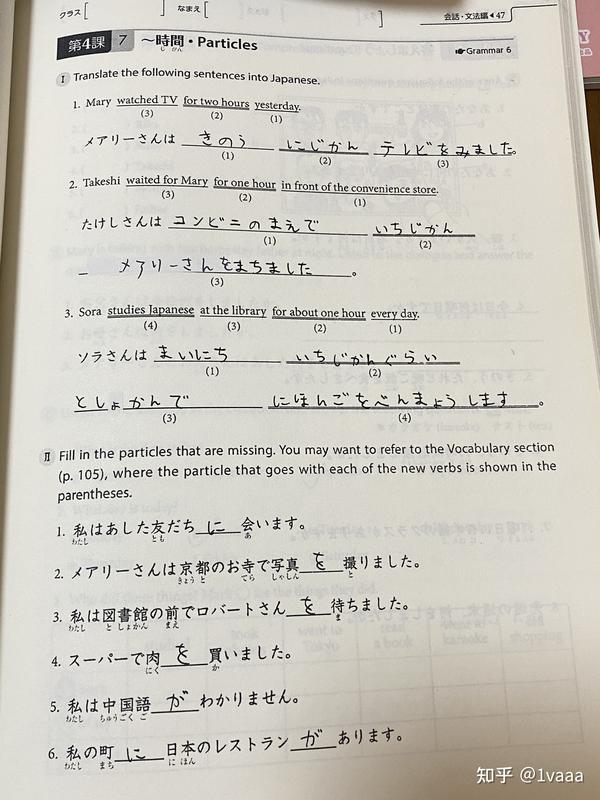 クラス なまえ
会話・文法編◀47
第4課 7 〜時間・Particles
じかん
☛Grammar 6
Ⅰ Translate the following sentences into Japanese.
1. Mary watched TV for two hours yesterday.
(3) (2) (1)
メアリーさんは きのう にじかん テレビをみました。
(1) (2) (3)
2. Takeshi waited for Mary for one hour in front of the convenience store.
(3) (2) (1)
たけしさんは コンビニのまえで いちじかん
(1) (2)
メアリーさんをまちました。
(3)
3. Sora studies Japanese at the library for about one hour every day.
(4) (3) (2) (1)
ソラさんは まいにち いちじかんぐらい
(1) (2)
としょかんで にほんごをべんきょうします。
(3) (4)
Ⅱ Fill in the particles that are missing. You may want to refer to the Vocabulary section
(p. 105), where the particle that goes with each of the new verbs is shown in the
parentheses.
1. 私はあした友だち に 会います。
わたし とも あ
2. メアリーさんは京都のお寺で写真 を 撮りました。
きょうと てら しゃしん と
3. 私は図書館の前でロバートさん を 待ちました。
わたし としょかん まえ ま
4. スーパーで肉 を 買いました。
にく か
5. 私は中国語 が わかりません。
わたし ちゅうごくご
6. 私の町 に 日本のレストラン が あります。
わたし まち にほん
知乎 @1vaaa